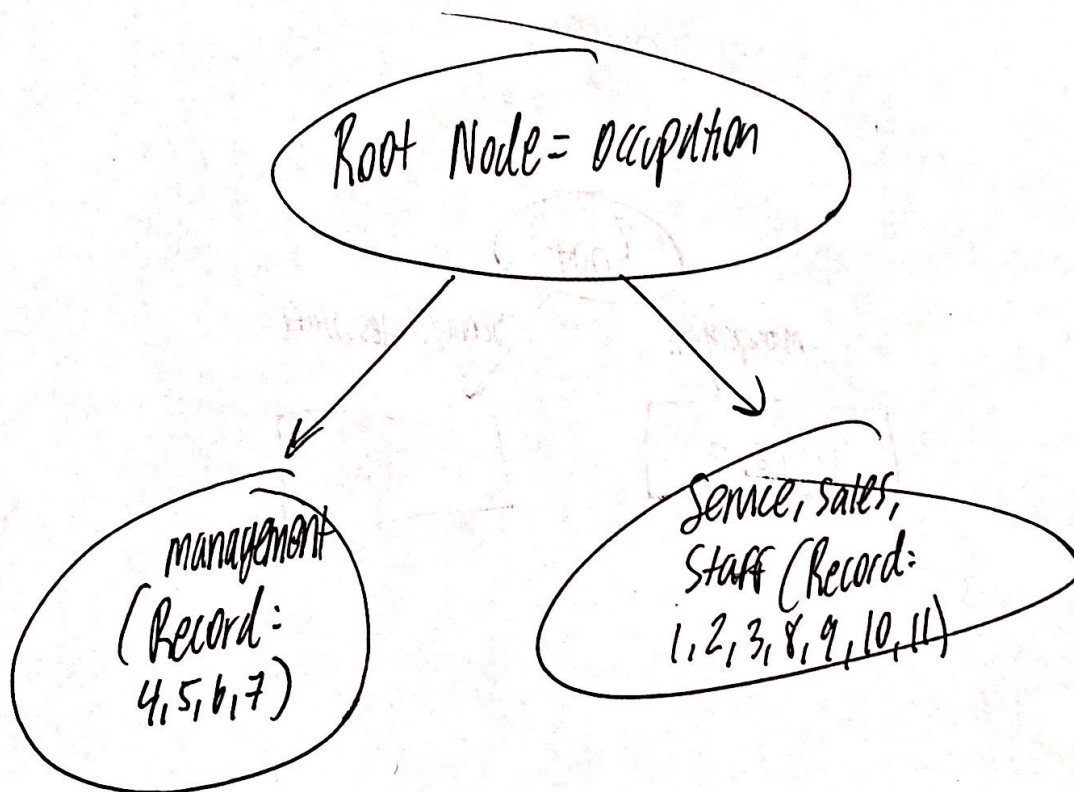 Root Node = Occupation
management
(Record:
4,5,6,7)
Service, Sales,
Staff (Record:
1,2,3,8,9,10,11)